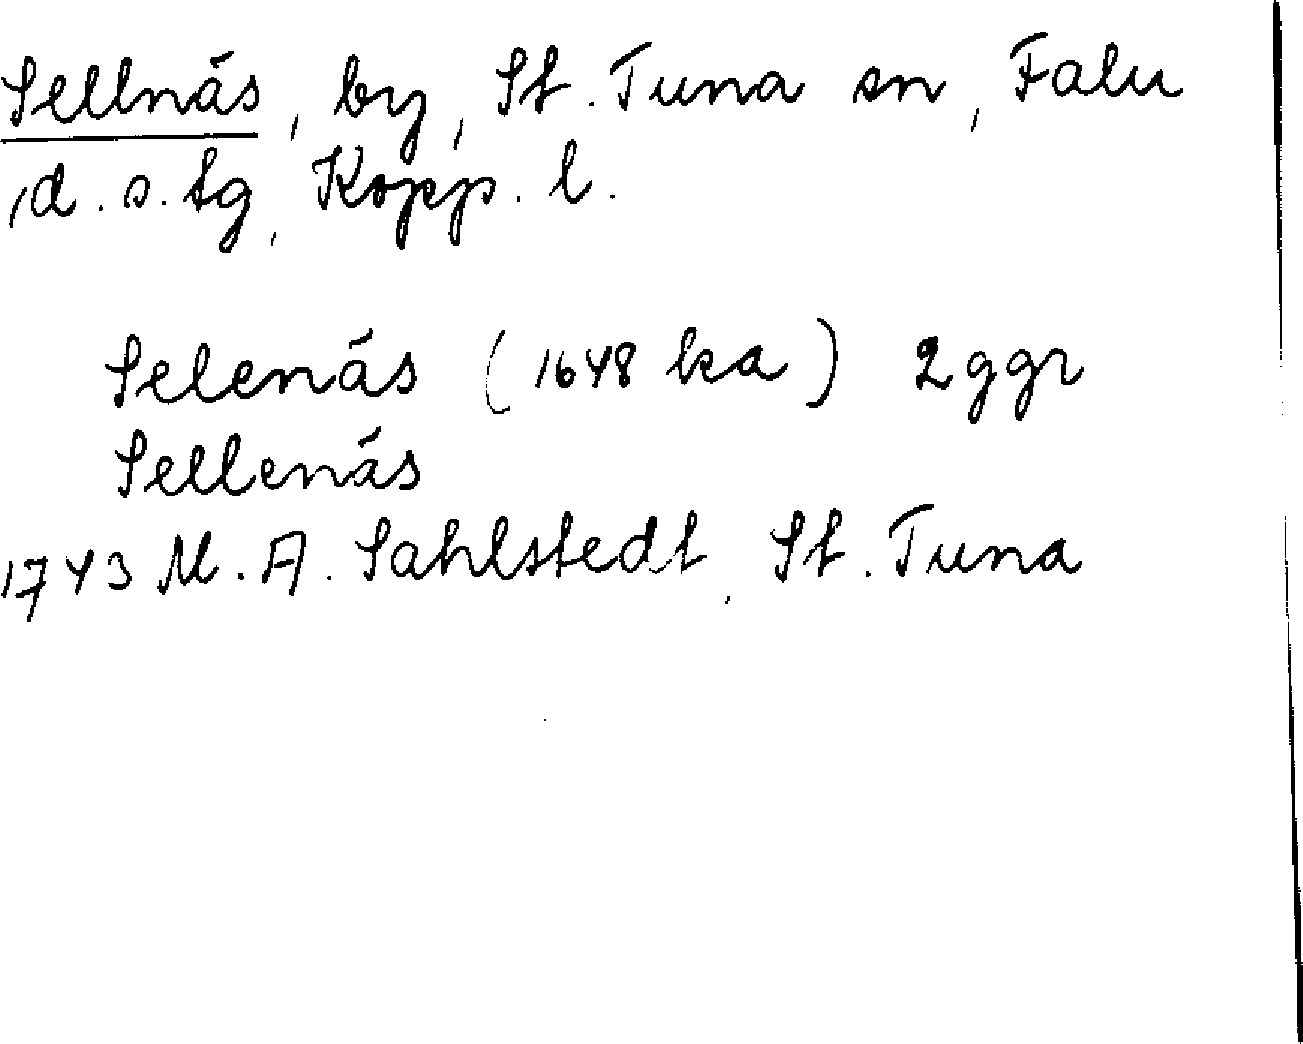 Sellnäs, by, St. Tuna sn, Falu
d. s. tg, Kopp. l.
Selenäs (1648 ka) 2 ggr
Sellenäs
1743 M. A. Sahlstedt, St. Tuna